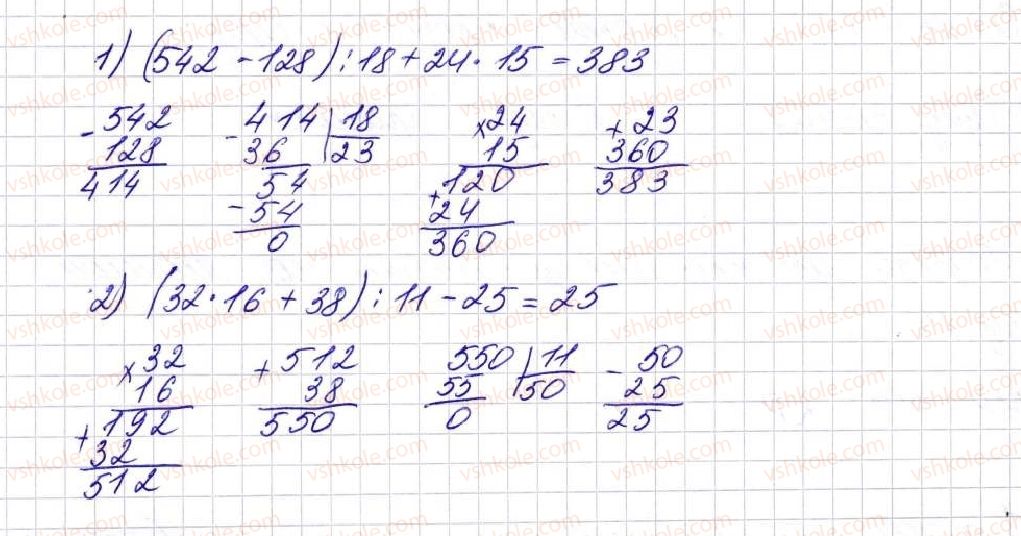 1) (542 - 128) : 18 + 24 · 15 = 383
- 542   - 414 | 18   × 24   + 23
128   36   23   15   360
414   54   120   383
- 54   + 24
0   360
2) (32 · 16 + 38) : 11 - 25 = 25
× 32   + 512   550 | 11   - 50
16   38   55   50   25
192   550   0   25
+ 32
512
vshkole.com